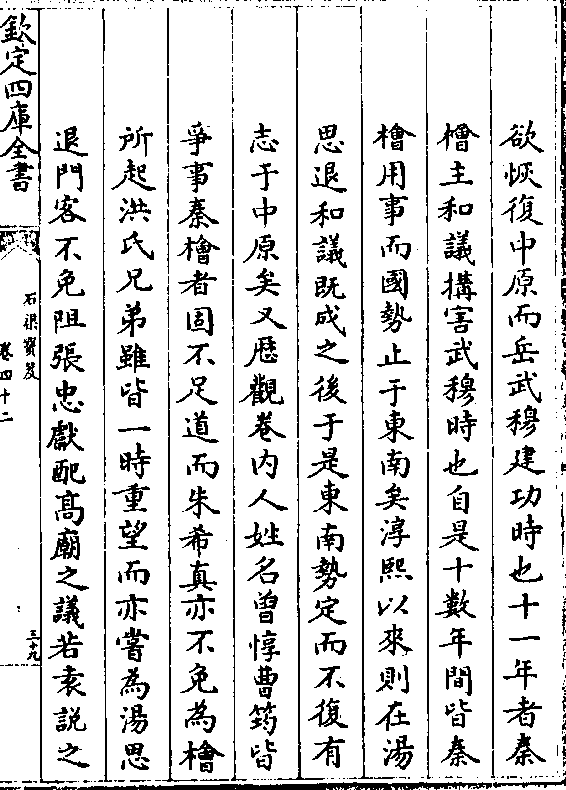 欲恢復中原而岳武穆建功時也十一年者秦
檜主和議搆害武穆時也自是十數年間皆秦
檜用事而國勢止于東南矣淳熙以來則在湯
思退和議既成之後于是東南勢定而不復有
志于中原矣又歴觀卷内人姓名曽惇曹筠皆
爭事秦檜者固不足道而朱希真亦不免為檜
所起洪氏兄弟雖皆一時重望而亦嘗為湯思
退門客不免阻張忠獻配髙廟之議若袁説之
欽定四庫全書
石渠寳笈
卷四十二
三十九